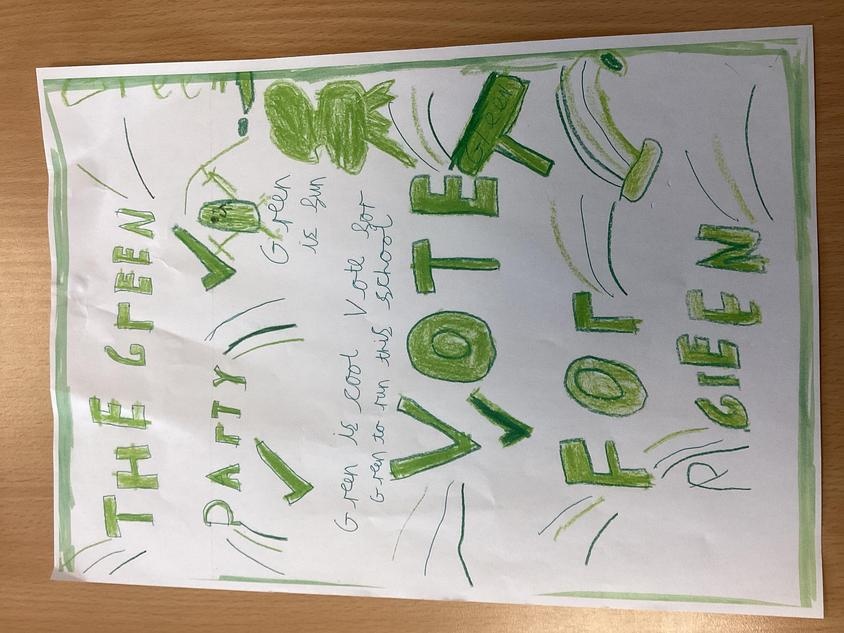 THE GrEEN
PArTY
Green
is fun
Green is cool Vote for
Green to run this school
VOTE
Green
FOr
GrEEN